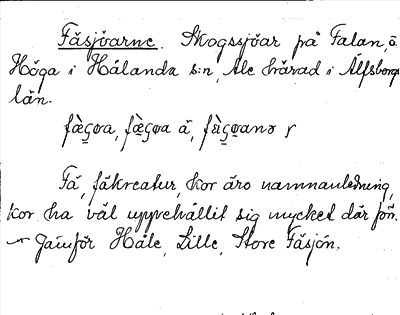 Fäsjöarne. Skogssjöar på Falan, ä.
Höga i Hålanda s:n, Ale härad i Älfsborgs
län.
fæ̀ʂøa, fæ̀ʂøa ä,
Fä, fäkreatur, kor äro namnanledning,
kor ha väl uppehållit sig mycket där förr.
Jämför Håle, Lille, Store Fäsjön.